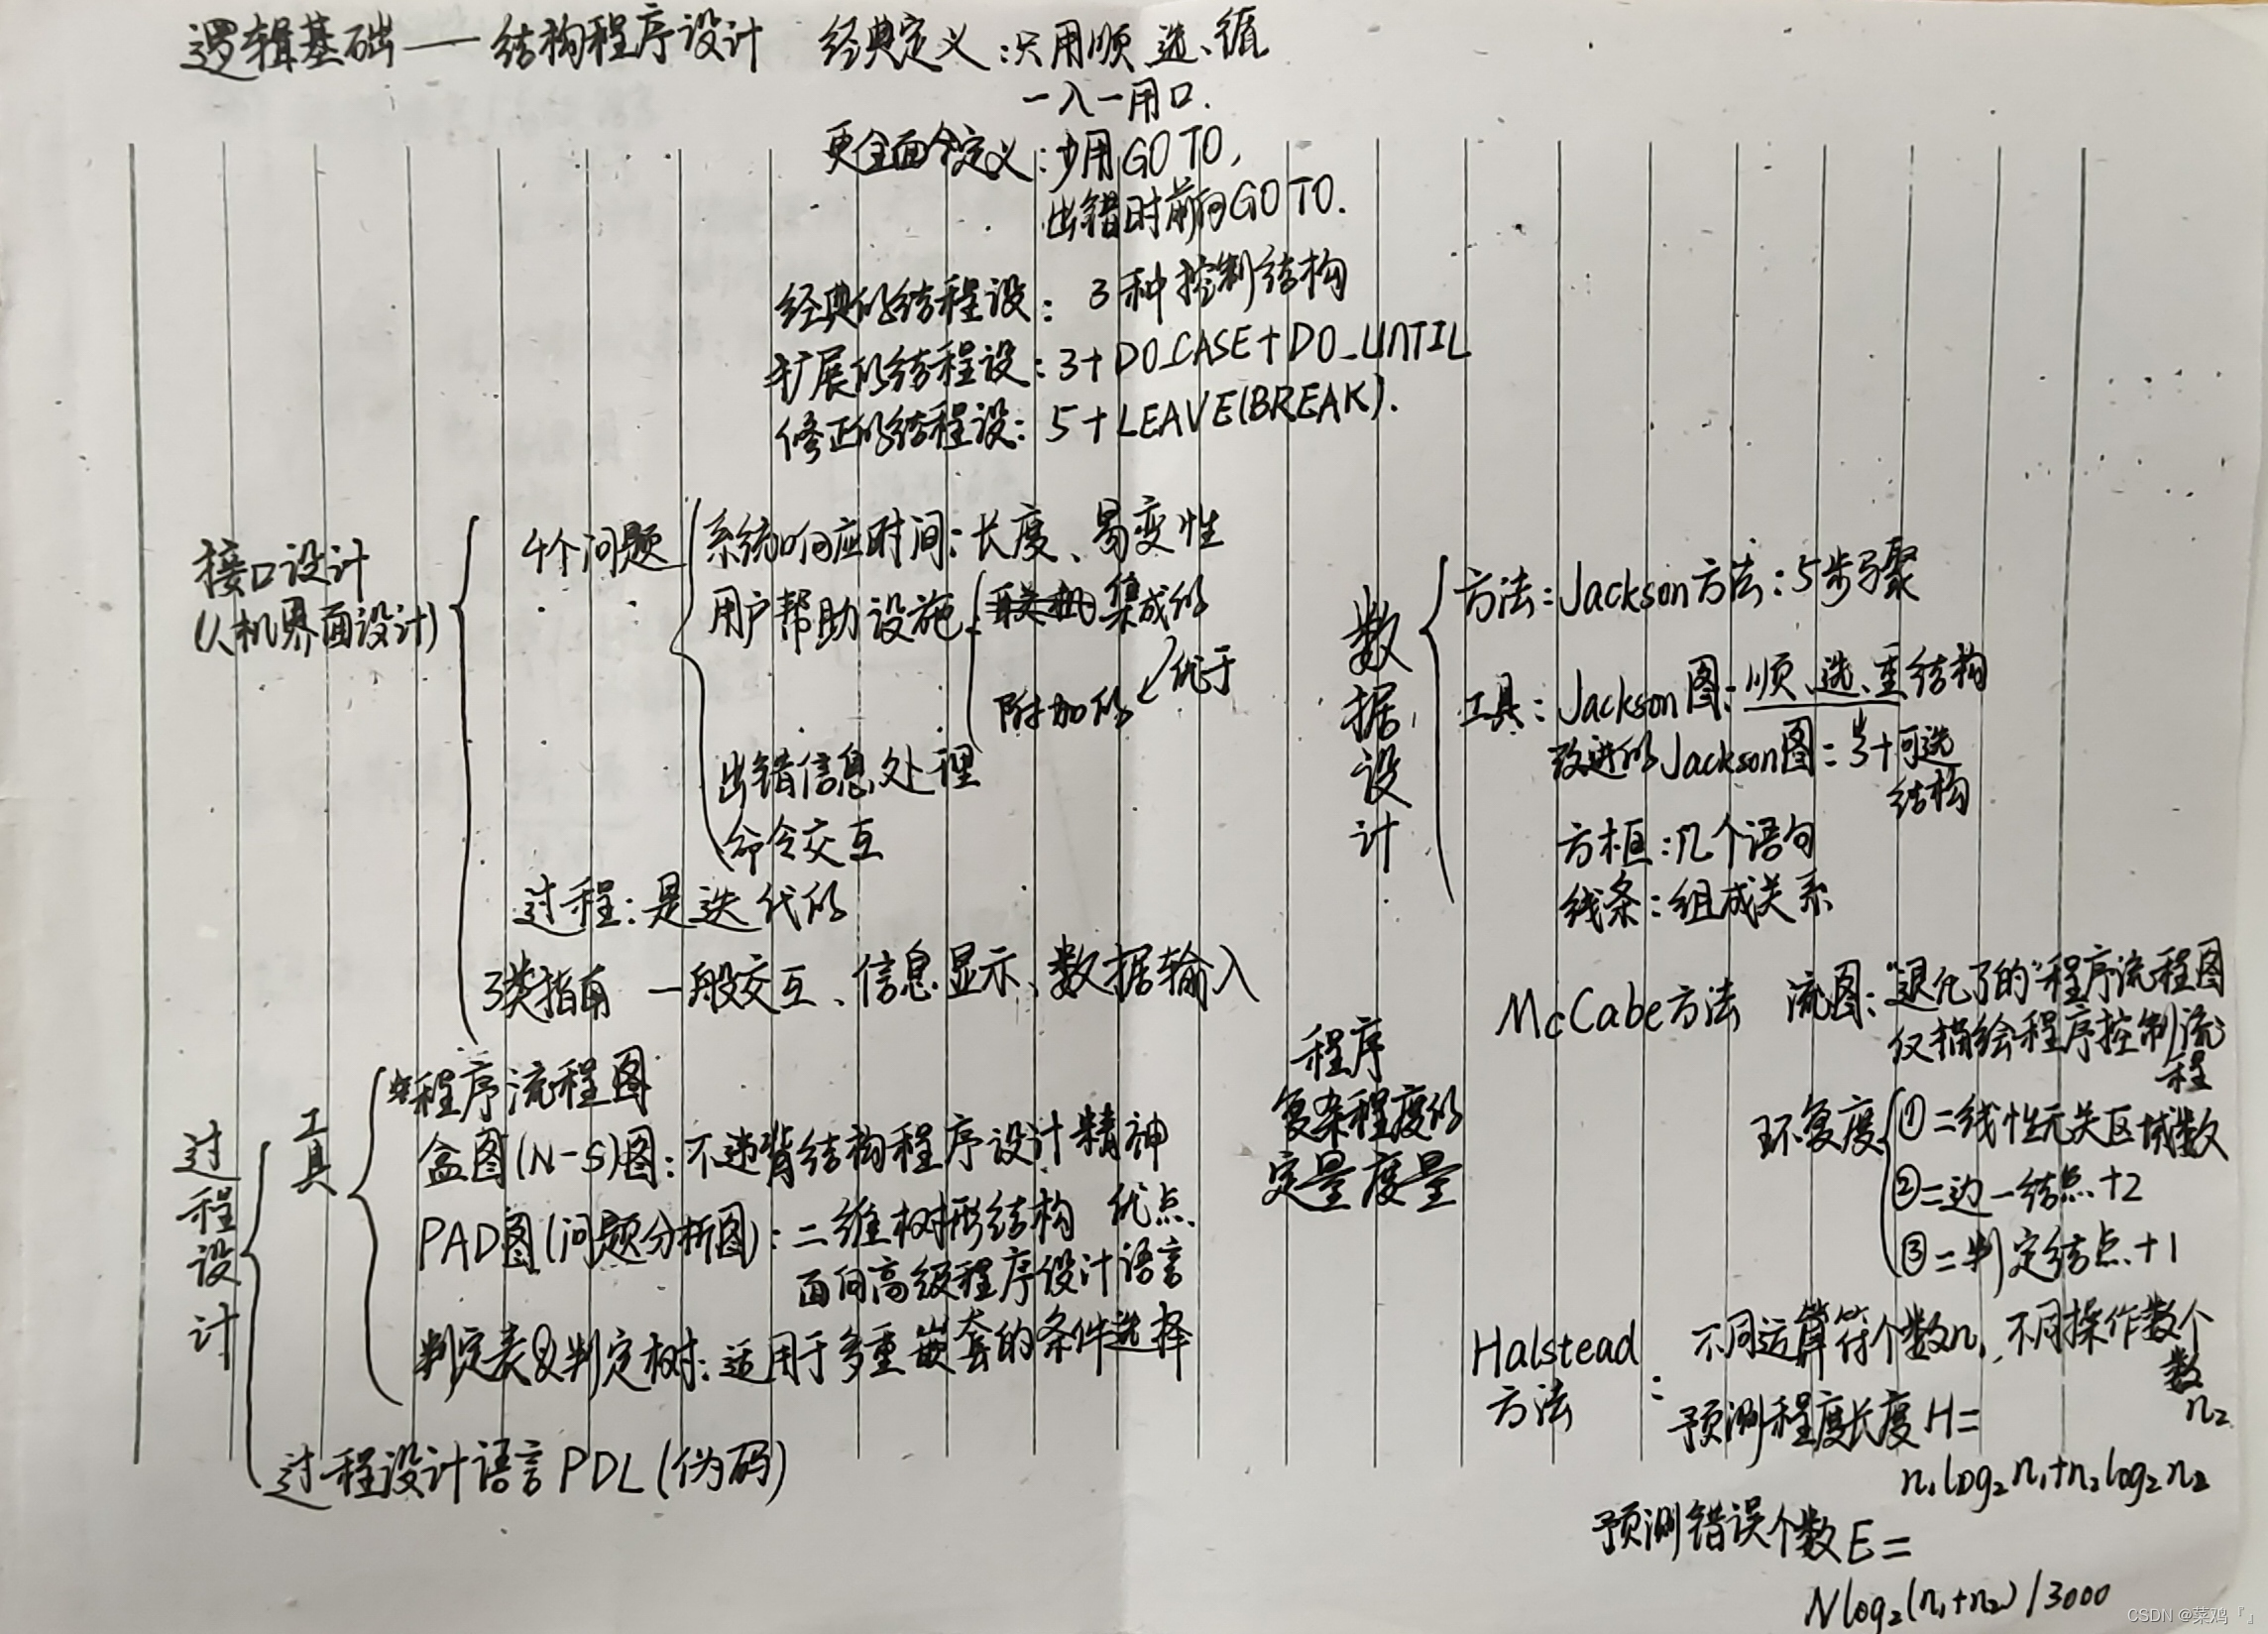 逻辑基础——结构程序设计 经典定义:只用顺、选、循
一入一用口.
更全面个定义:少用GO TO,
出错时前向GO TO.
经典的结程设: 3种控制结构
扩展的结程设:3+DO_CASE+DO_UNTIL
修正的结程设:5+LEAVE(BREAK).
接口设计
(人机界面设计)
4个问题
系统响应时间:长度、易变性
用户帮助设施
集成的
优于
附加的
出错信息处理
命令交互
过程:是迭代的
3类指南 一般交互、信息显示、数据输入
过程设计
工具
程序流程图
盒图(N-S)图:不违背结构程序设计精神
PAD图(问题分析图):二维树形结构 优点
面向高级程序设计语言
判定表&判定树:适用于多重嵌套的条件选择
过程设计语言PDL(伪码)
数据设计
方法:Jackson方法:5步骤
工具:Jackson图:顺、选、重结构
改进的Jackson图:3+可选
结构
方框:几个语句
线条:组成关系
程序
复杂程度的
定量度量
McCabe方法 流图:"退化了的"程序流程图
仅描绘程序控制流
程
环复度
①=线性无关区域数
②=边-结点+2
③=判定结点+1
Halstead
方法
: 不同运算符个数n₁,不同操作数个
数
n₂
预测程度长度H=
n₁log₂n₁+n₂log₂n₂
预测错误个数E=
Nlog₂(n₁+n₂)/3000
CSDN @菜鸡『』